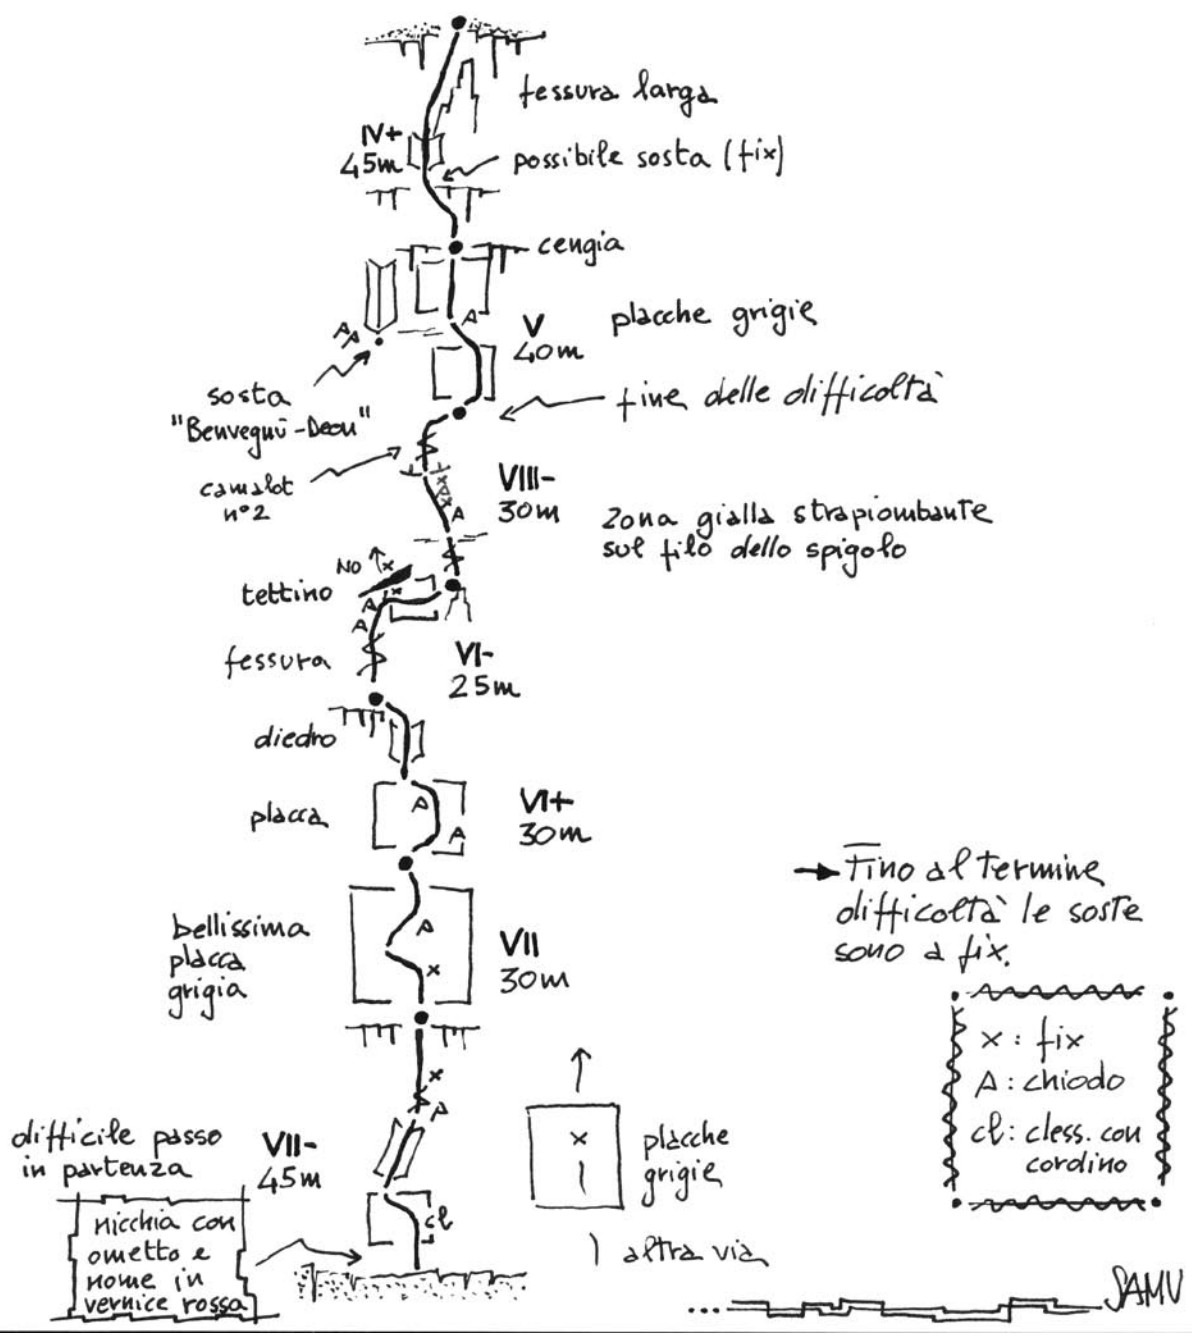 fessura larga
IV+
45m
possibile sosta (fix)
cengia
A
V
40m
placche grigie
A
A
sosta
"Benvegnù-Deon"
fine delle difficoltà
camalot
n°2
VIII-
30m
x
x
A
zona gialla strapiombante
sul filo dello spigolo
NO
x
tettino
x
A
A
fessura
VI-
25m
diedro
placca
A
A
VI+
30m
bellissima
placca
grigia
A
x
VII
30m
→ Fino al termine
difficoltà le soste
sono a fix.
x : fix
A : chiodo
cl : cless. con
cordino
x
A
difficile passo
in partenza
VII-
45m
cl
x
placche
grigie
altra via
nicchia con
ometto e
nome in
vernice rossa
SAMU